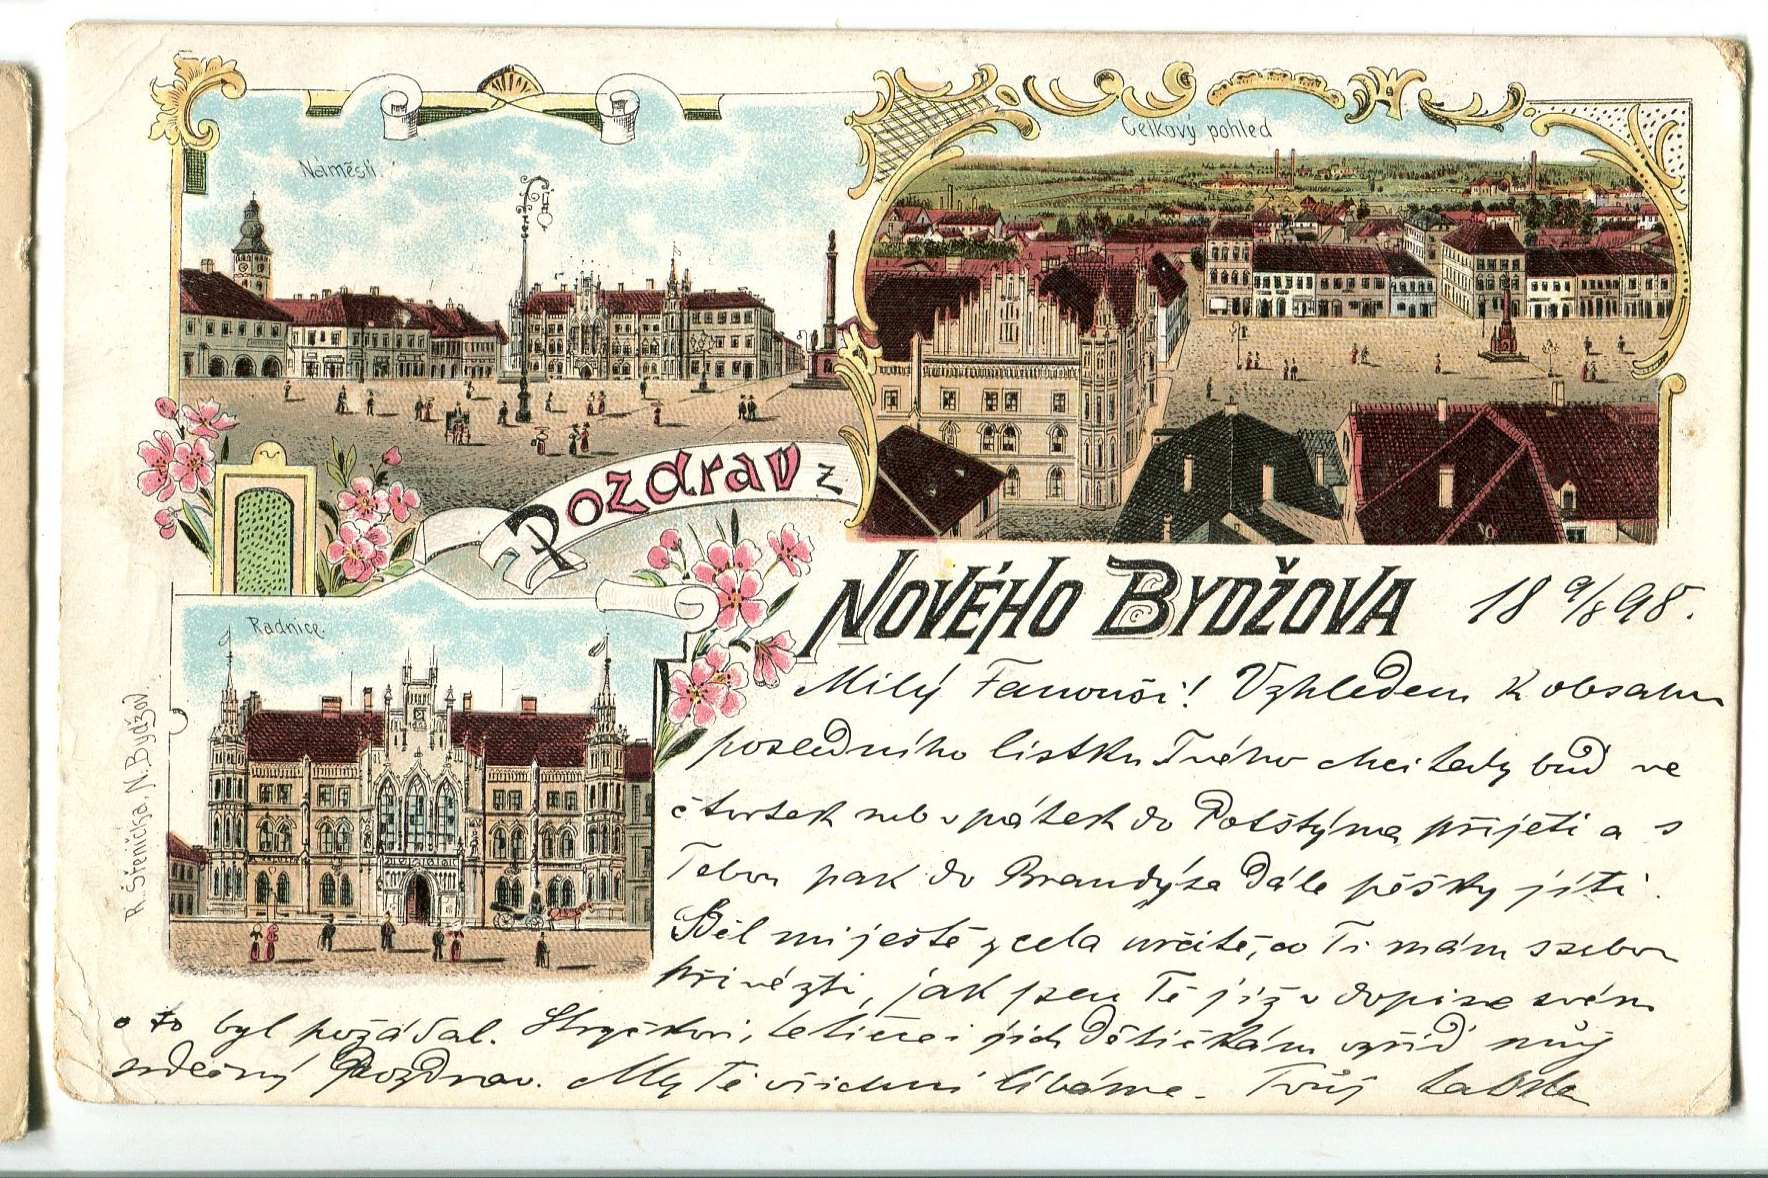 Náměstí.
Celkový pohled
Pozdrav z
NOVÉHO BYDŽOVA
18 9/8 98.
Radnice.
R. Štenička, N. Bydžov.
Milý Fanouši! Vzhledem k obsahu
posledního lístku Tvého chci tedy buď ve
čtvrtek nebo v pátek do Potštýna přijeti a s
Tebou pak do Brandýsa dále pěšky jíti.
Běl mi ještě zcela určitě, co Ti mám ssebou
přivézti, jak jsem Tě již v dopise svém
o to byl požádal. Strýčkovi, tetičce i jich dětičkám vyřiď můj
srdečný Pozdrav. My Tě všichni líbáme. Tvůj